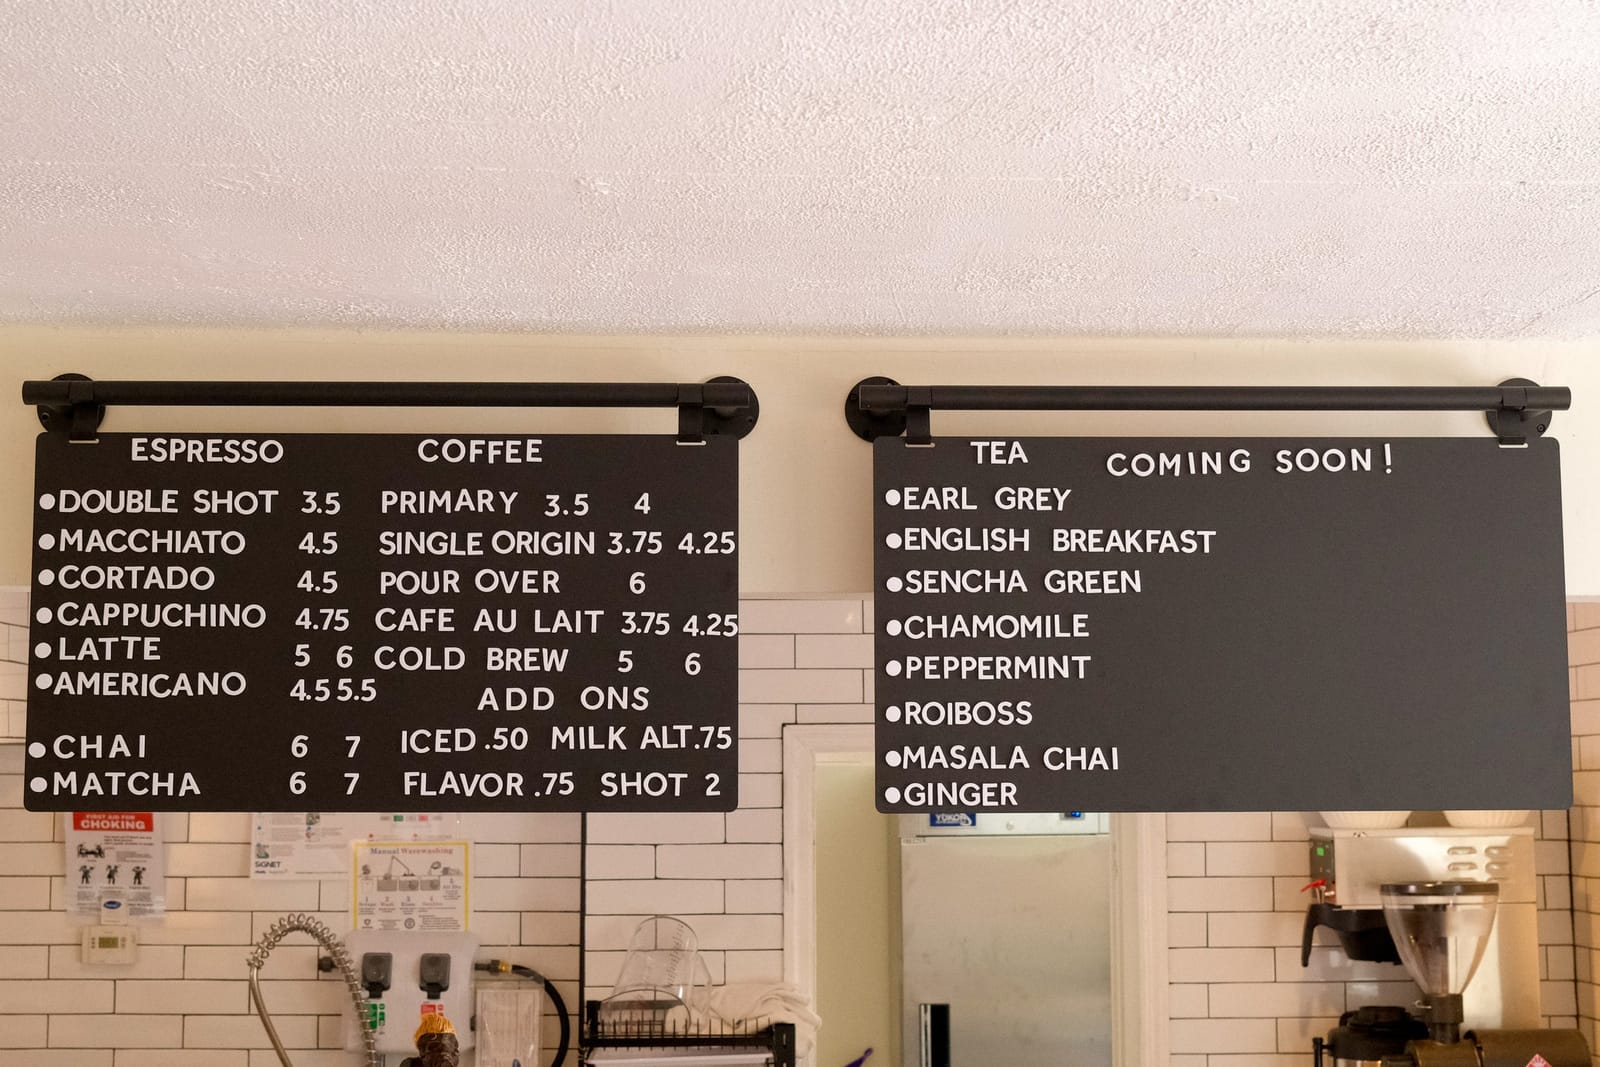 ESPRESSO
DOUBLE SHOT 3.5
MACCHIATO 4.5
CORTADO 4.5
CAPPUCHINO 4.75
LATTE 5 6
AMERICANO 4.5 5.5
CHAI 6 7
MATCHA 6 7
COFFEE
PRIMARY 3.5 4
SINGLE ORIGIN 3.75 4.25
POUR OVER 6
CAFE AU LAIT 3.75 4.25
COLD BREW 5 6
ADD ONS
ICED .50 MILK ALT .75
FLAVOR .75 SHOT 2
TEA COMING SOON!
EARL GREY
ENGLISH BREAKFAST
SENCHA GREEN
CHAMOMILE
PEPPERMINT
ROIBOSS
MASALA CHAI
GINGER
FIRST AID FOR
CHOKING
SIGNET
Manual Warewashing
YUKON